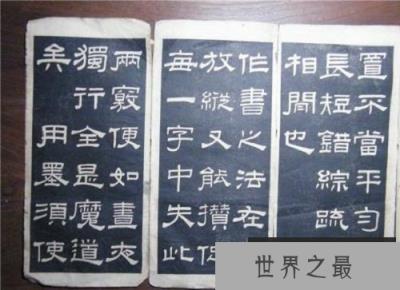 置不當平勻
長短錯綜疏
相間也
作書之法在
放縱又能攢
每一字中失此
兩竅便如晝夜
獨行全是魔道
矣 用墨須使
世界之最